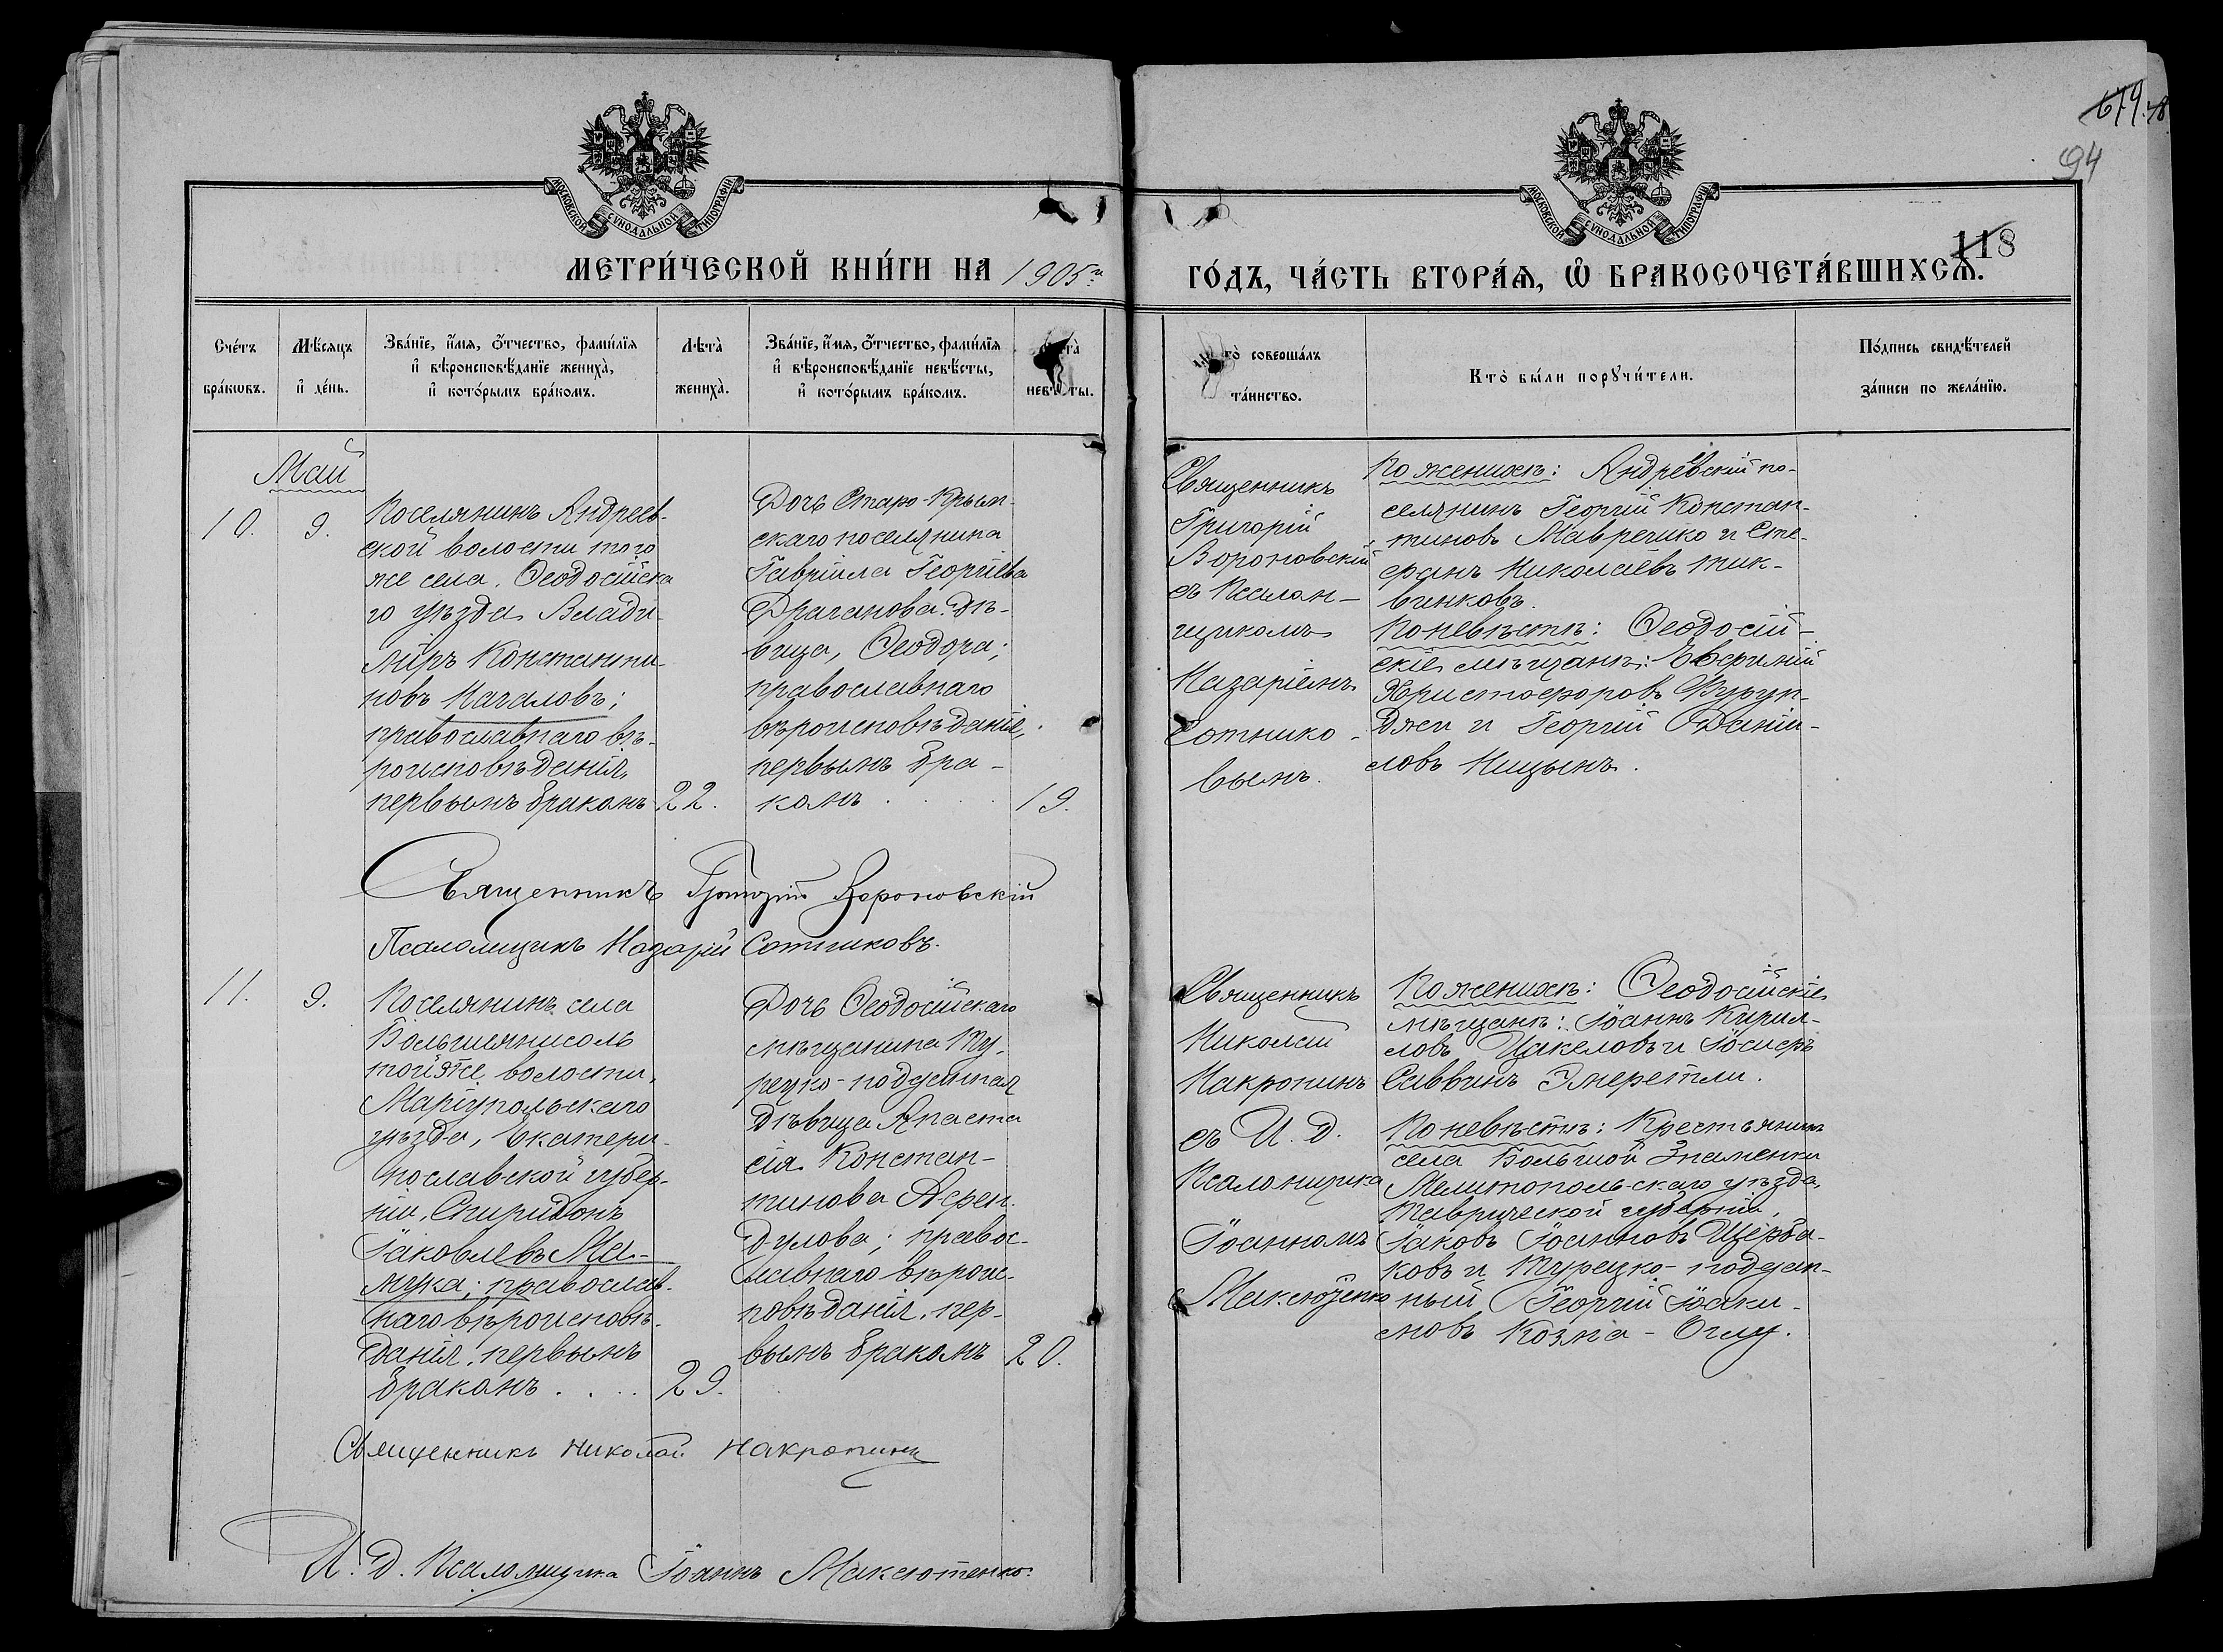 679.
94
118
МОСКОВСКОЙ СѴНОДАЛЬНОЙ ТИПОГРАФІИ
МОСКОВСКОЙ СѴНОДАЛЬНОЙ ТИПОГРАФІИ
МЕТРИ́ЧЕСКОЙ КНИ́ГИ НА 1905й
ГО́ДЪ, ЧА́СТЬ ВТОРА́Ѧ, Ѽ БРАКОСОЧЕТА́ВШИХСѦ.
Сче́тъ
бра́кѡвъ.
Мѣ́сѧцъ
и҆ де́нь.
Зва́нїе, и҆́мѧ, ѻ҆́тчество, фами́лїѧ
и҆ вѣроисповѣ́данїе жениха̀,
и҆ кото́рымъ бра́комъ.
Лѣта̀
жениха̀.
Зва́нїе, и҆́мѧ, ѻ҆́тчество, фами́лїѧ
и҆ вѣроисповѣ́данїе невѣ́сты,
и҆ кото́рымъ бра́комъ.
невѣ́сты.
соверша́лъ
та́инство.
Кто̀ бы́ли порꙋчи́тели.
По́дпись свидѣ́телей
за́писи по жела́нїю.
Май
10.
9.
Поселянинъ Андреев-
ской волости того
же села, Ѳеодосійска
го уѣзда Влади-
міръ Константи-
новъ Качаловъ;
православнаго вѣ-
роисповѣданія,
первымъ бракомъ
22.
Дочь Старо-Крым-
скаго поселянина
Гавріила Георгіева
Драганова дѣ-
вица, Ѳеодора;
православнаго
вѣроисповѣданіе,
первымъ бра-
комъ . . . .
19.
Священникъ
Григорій
Вороновскій
съ Псалом-
щикомъ
Назаріемъ
Сотнико-
вымъ.
По женихѣ: Андреевскій по-
селянинъ Георгій Констан-
тиновъ Мавречико и Сте-
фанъ Николаевъ Тик-
винковъ.
По невѣстѣ: Ѳеодосій-
скіе мѣщане: Евфимій
Христофоровъ Фурун-
джи и Георгій Даніи-
ловъ Ницынъ.
Священникъ Григорій Вороновскій
Псаломщикъ Назарій Сотниковъ.
11.
9.
Поселянинъ села
Большеянисоль
той же волости,
Маріупольскаго
уѣзда, Екатери-
нославской губер-
ніи, Спиридонъ
Іаковлевъ Ма-
мука; православ-
наго вѣроисповѣ-
данія, первымъ
бракомъ. . . .
29.
Дочь Ѳеодосійскаго
мѣщанина Ту-
рецко-подданная
дѣвица Анаста
сія Констан-
тинова Афен-
дулова; правос-
лавнаго вѣроис-
повѣданія, пер-
вымъ бракомъ
20.
Священникъ
Николай
Накропинъ
съ И. д.
Псаломщика
Іоанномъ
Максютенко
По женихѣ: Ѳеодосійскіе
мѣщане: Іоаннъ Кирил-
ловъ Цакеловъ и Іосифъ
Саввинъ Эмеретли.
По невѣстѣ: Крестьянинъ
села Большой Знаменки
Мелитопольскаго уѣзда,
Таврической губерніи,
Іаковъ Іоанновъ Щерба-
ковъ и Турецко-поддан-
ный Георгій Іоаки-
мовъ Козма-Оглу.
Священникъ Николай Накропинъ
И. д. Псаломщика Іоаннъ Максютенко.